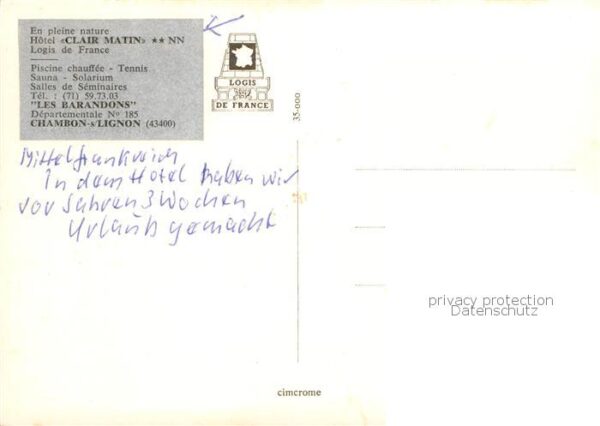 En pleine nature
Hôtel «CLAIR MATIN» ★★ NN
Logis de France
Piscine chauffée - Tennis
Sauna - Solarium
Salles de Séminaires
Tél. : (71) 59.73.03
"LES BARANDONS"
Départementale Nº 185
CHAMBON-s/LIGNON (43400)
LOGIS
DE FRANCE
35-000
Mittelfrankreich
In dem Hotel haben wir
vor Jahren 3 Wochen
Urlaub gemacht
privacy protection
Datenschutz
cimcrome